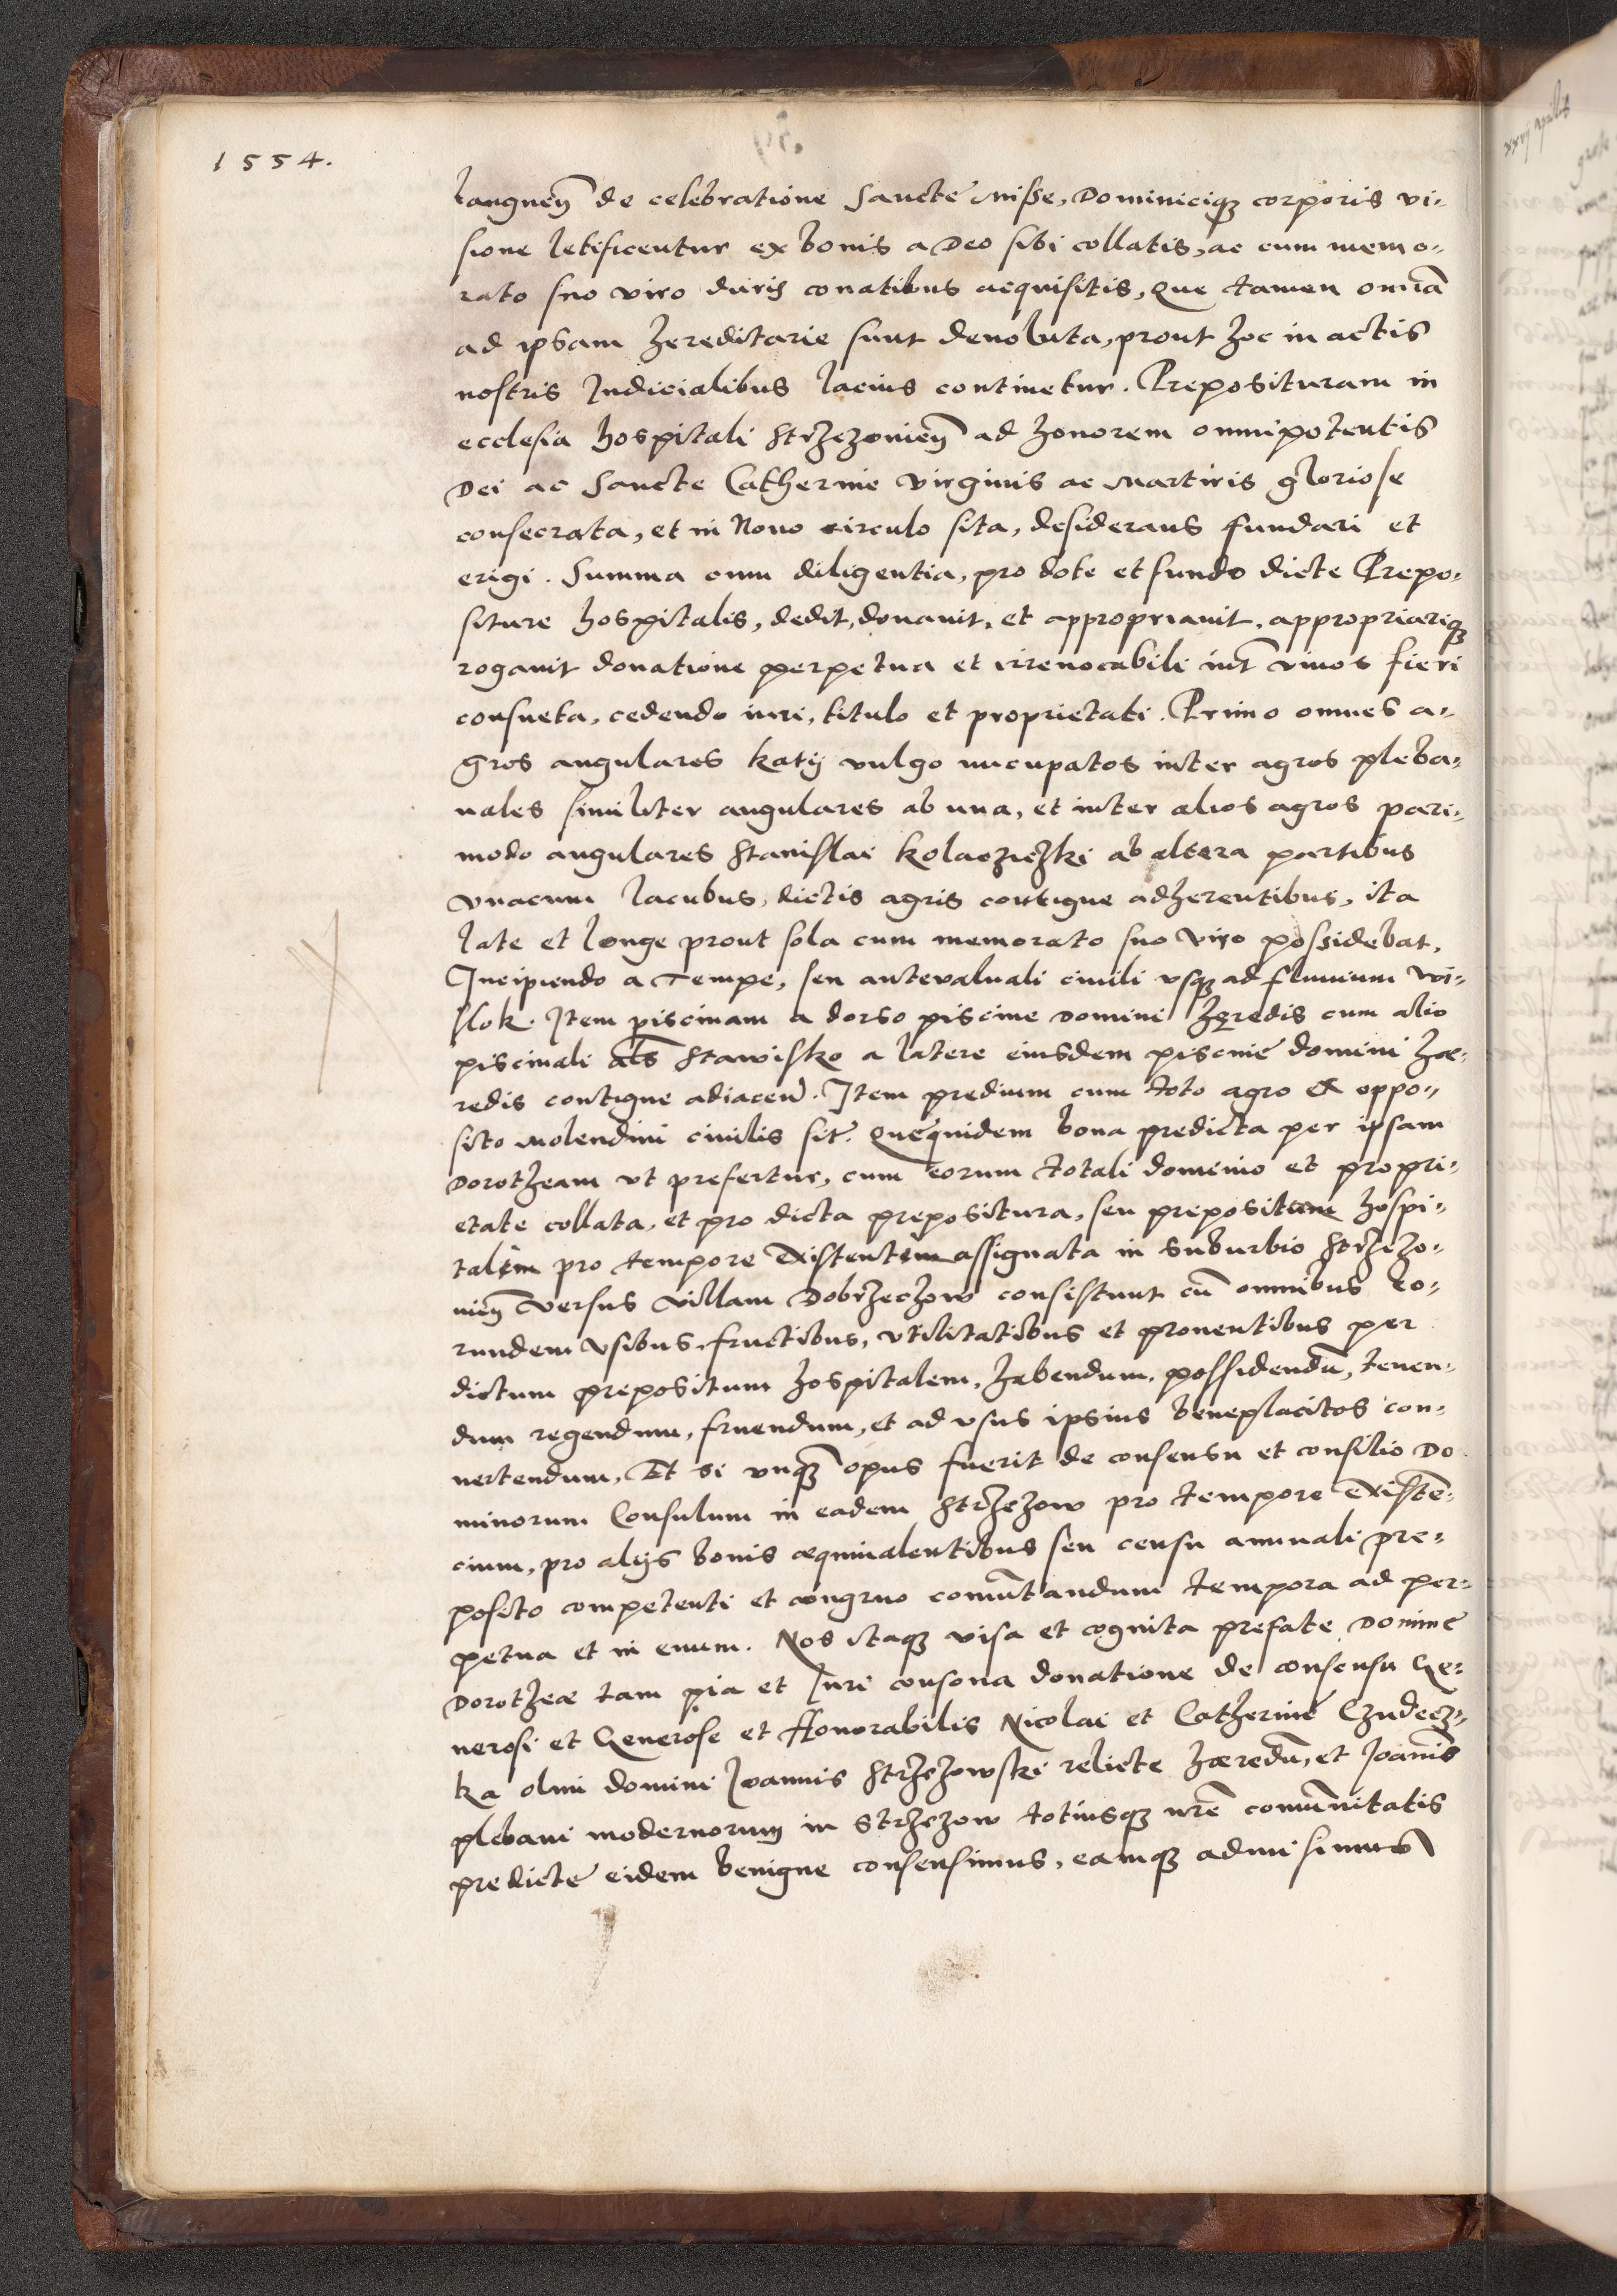 1554.
langueñ de celebratione Sancte misse, Dominiciq3 corporis vi-
sione letificentur ex bonis a Deo sibi collatis, ac cum memo-
rato suo viro duris conatibus acquisitis, Que tamen omnia
ad ipsam hereditarie sunt deuoluta, prout hoc in actis
nostris Iudicialibus lacius continetur. Preposituram in
ecclesia hospitali Strzezouieñ ad honorem omnipotentis
Dei ac Sancte Catherine virginis ac Martiris gloriose
consecrata, et in Nouo circulo sita, desiderans fundari et
erigi. Summa cum diligentia, pro dote et fundo dicte Prepo-
siture hospitalis, dedit, donauit, et appropriauit, appropriariq3
rogauit donatione perpetua et irreuocabili int̃ viuos fieri
consueta, cedendo iuri, titulo et proprietati. Primo omnes a-
gros angulares katij vulgo nucupatos inter agros pleba-
nales similiter angulares ab una, et inter alios agros pari-
modo angulares Stanislai Kolacziczki ab altera partibus
vnacum lacubus, dictis agris contigue adherentibus, ita
late et longe prout sola cum memorato suo viro possidebat,
Incipiendo a Tempe, seu antevaluali ciuili vsq3 ad fluuium Wi-
slok. Item piscinam a dorso piscine Domini heredis cum alio
piscinali als̃ Stawisko a latere eiusdem piscine domini hæ-
redis contigue adiaceñ. Item predium cum toto agro ex oppo-
sito Molendini ciuilis sit̃. Quequidem bona predicta per ipsam
Dorotheam vt prefertur, cum eorum totali dominio et propri-
etate collata, et pro dicta prepositura, seu prepositum hospi-
talem pro tempore existentem assignata in Suburbio Strzezo-
uieñ versus villam Dobrzeczow consistunt cũ omnibus eo-
rundem vsibus, fructibus, vtilitatibus et prouentibus per
dictum prepositum hospitalem, habendum, possidendũ, tenen-
dum regendum, fruendum, et ad vsus ipsius beneplacitos con-
uertendum, Et si vnq3 opus fuerit de consensu et consilio Do
minorum Consulum in eadem Strzezow pro tempore existẽ-
cium, pro alijs bonis æquiualentibus seu censu annuali pre-
posito competenti et congruo comũtandum tempora ad per-
petua et in euum. Nos itaq3 visa et cognita prefate Domine
Dorotheæ tam pia et Iuri consona donatione de consensu Ge-
nerosi et Generose et Honorabilis Nicolai et Catherine Czudecz-
ka olim domini Ioannis Strzezowski relicte hæredũ, et Ioannis
plebani modernorum in Strzezow totiusq3 nr̃e comũnitatis
predicte eidem benigne consensimus, eamq3 admisimus